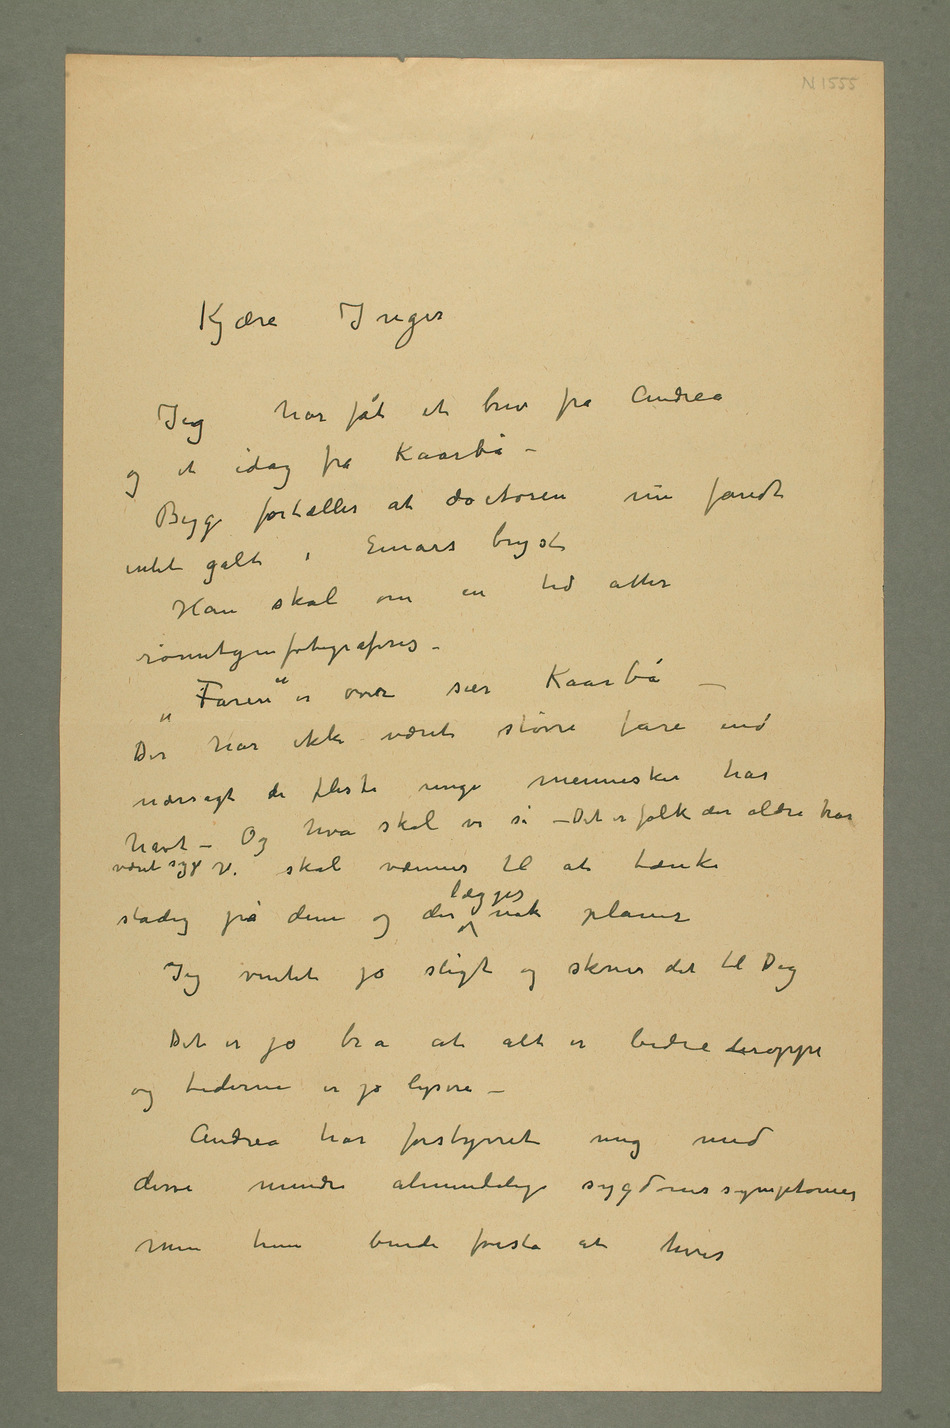 N 1555
Kjære Inger
Jeg har fåt et brev fra Andrea
og et idag fra Kaarbå –
Begge fortæller at doctoren nu fandt
intet galt i Einars bryst
Han skal om en tid atter
røntgenfotograferes –
„Faren“ er over sier Kaarbå –
Der har ikke været større fare end
nærsagt de fleste unge mennesker har
havt – Og hva skal vi si – Det er folk der aldre har
været syge Vi skal vænnes til at tænke
stadig på dem og der lægges nok planer
Jeg ventet jo sligt og skrev det til Dig
Det er jo bra at alt er bedre deroppe
og tiderne er jo lysere –
Andrea har forstyrret mig med
disse mindre almindelige sygdomssymptomer
men hun burde forstå at hvis